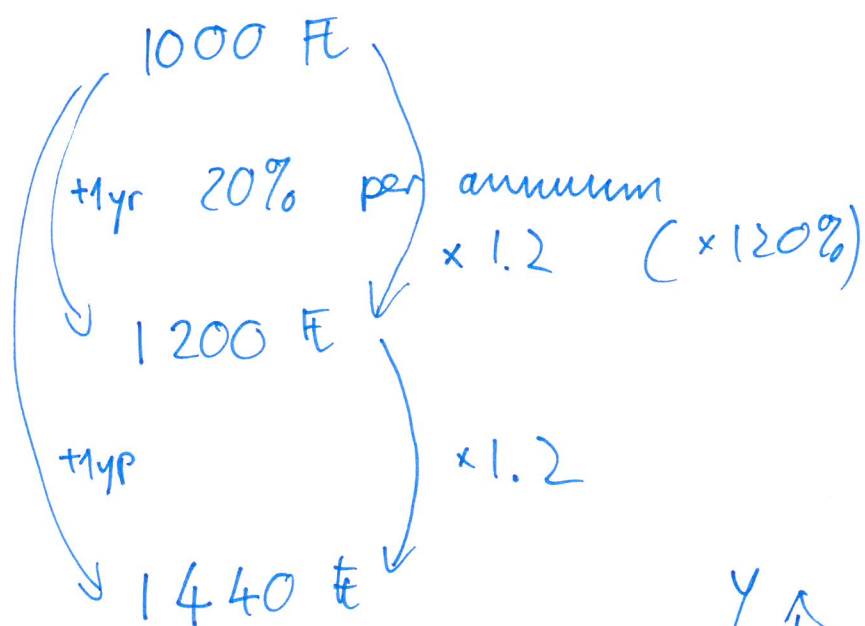 1000 Ft
+1yr 20% per annuum
× 1.2 (×120%)
1200 Ft
+1yr ×1.2
1440 Ft
y